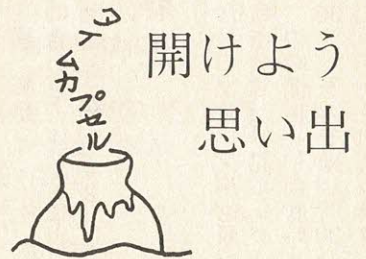 タイムカプセル
開けよう
思い出